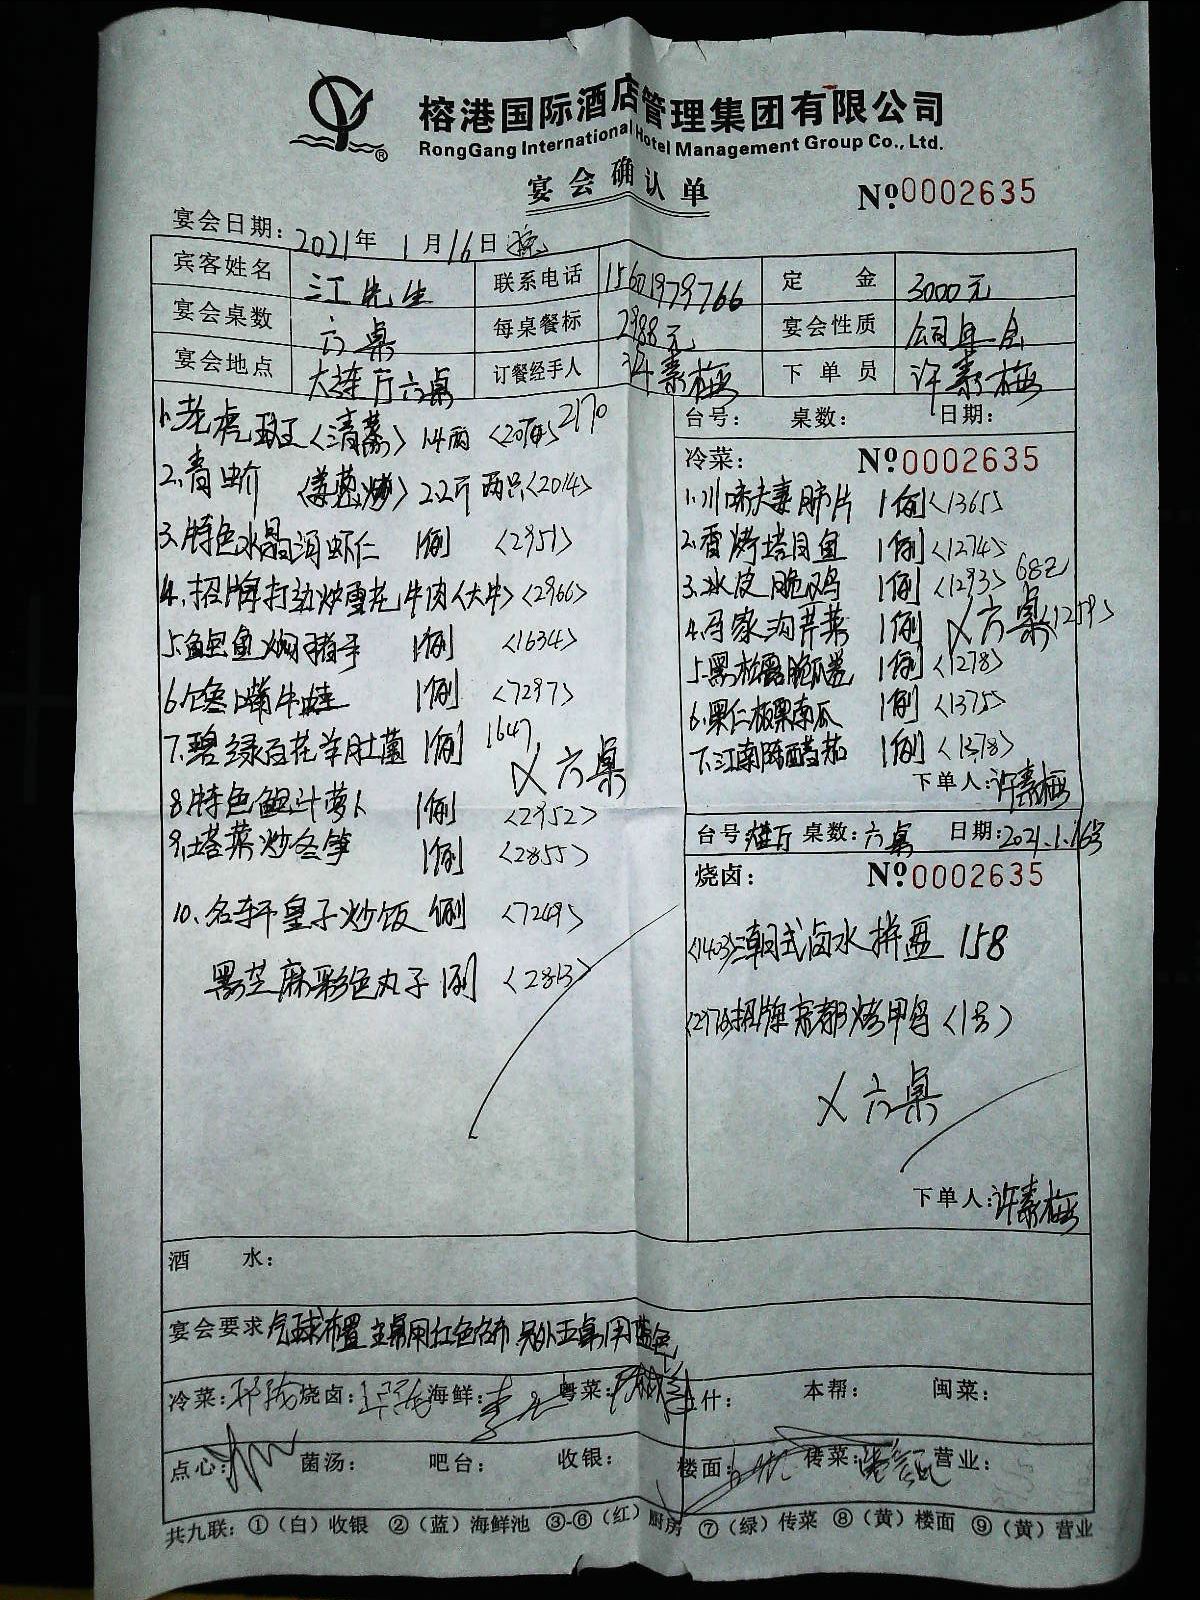 榕港国际酒店管理集团有限公司
RongGang International Hotel Management Group Co., Ltd.
宴会确认单
№0002635
宴会日期：2021年1月16日 晚
宾客姓名 江先生 联系电话 15601979766 定金 3000元
宴会桌数 六桌 每桌餐标 2988元 宴会性质 公司年会
宴会地点 大连厅六桌 订餐经手人 许素梅 下单员 许素梅
1.老虎斑〈清蒸〉14两
2170
2.青蚧〈姜葱炒〉2.2斤两只〈2014〉
3.特色水晶河虾仁 1例 〈2951〉
4.招牌打边炉雪花牛肉〈大牛〉〈2966〉
5.鲍鱼焖猪手 1例 〈1634〉
6.馋嘴牛蛙 1例 〈7297〉
7.碧绿百花羊肚菌 1例 1647
X六桌
8.特色鲍汁萝卜 1例 〈2952〉
9.塔菜炒冬笋 1例 〈2855〉
10.名轩皇子炒饭 1例 〈7249〉
黑芝麻彩色丸子 1例 〈2813〉
台号： 桌数： 日期：
冷菜： №0002635
1.川味夫妻肺片 1例〈1365〉
2.香烤塔目鱼 1例〈1274〉
3.冰皮脆鸡 1例〈1293〉 68元
4.马家沟芹菜 1例 〈1259〉
X六桌
5.黑松露脆瓜卷 1例〈1278〉
6.果仁板栗南瓜 1例〈1375〉
7.江南陈醋茄 1例〈1378〉
下单人：许素梅
台号：大连厅 桌数：六桌 日期：2021.1.16号
烧卤： №0002635
〈1403〉潮式卤水拼盘 158
招牌京都烤甲鸟〈1号〉
X六桌
下单人：许素梅
酒水：
宴会要求 气球布置 主桌用红色台布 另外五桌用蓝色
冷菜： 烧卤： 海鲜： 粤菜： 上什： 本帮： 闽菜：
点心： 菌汤： 吧台： 收银： 楼面： 传菜： 营业：
共九联：①（白）收银 ②（蓝）海鲜池 ③-⑥（红）厨房 ⑦（绿）传菜 ⑧（黄）楼面 ⑨（黄）营业